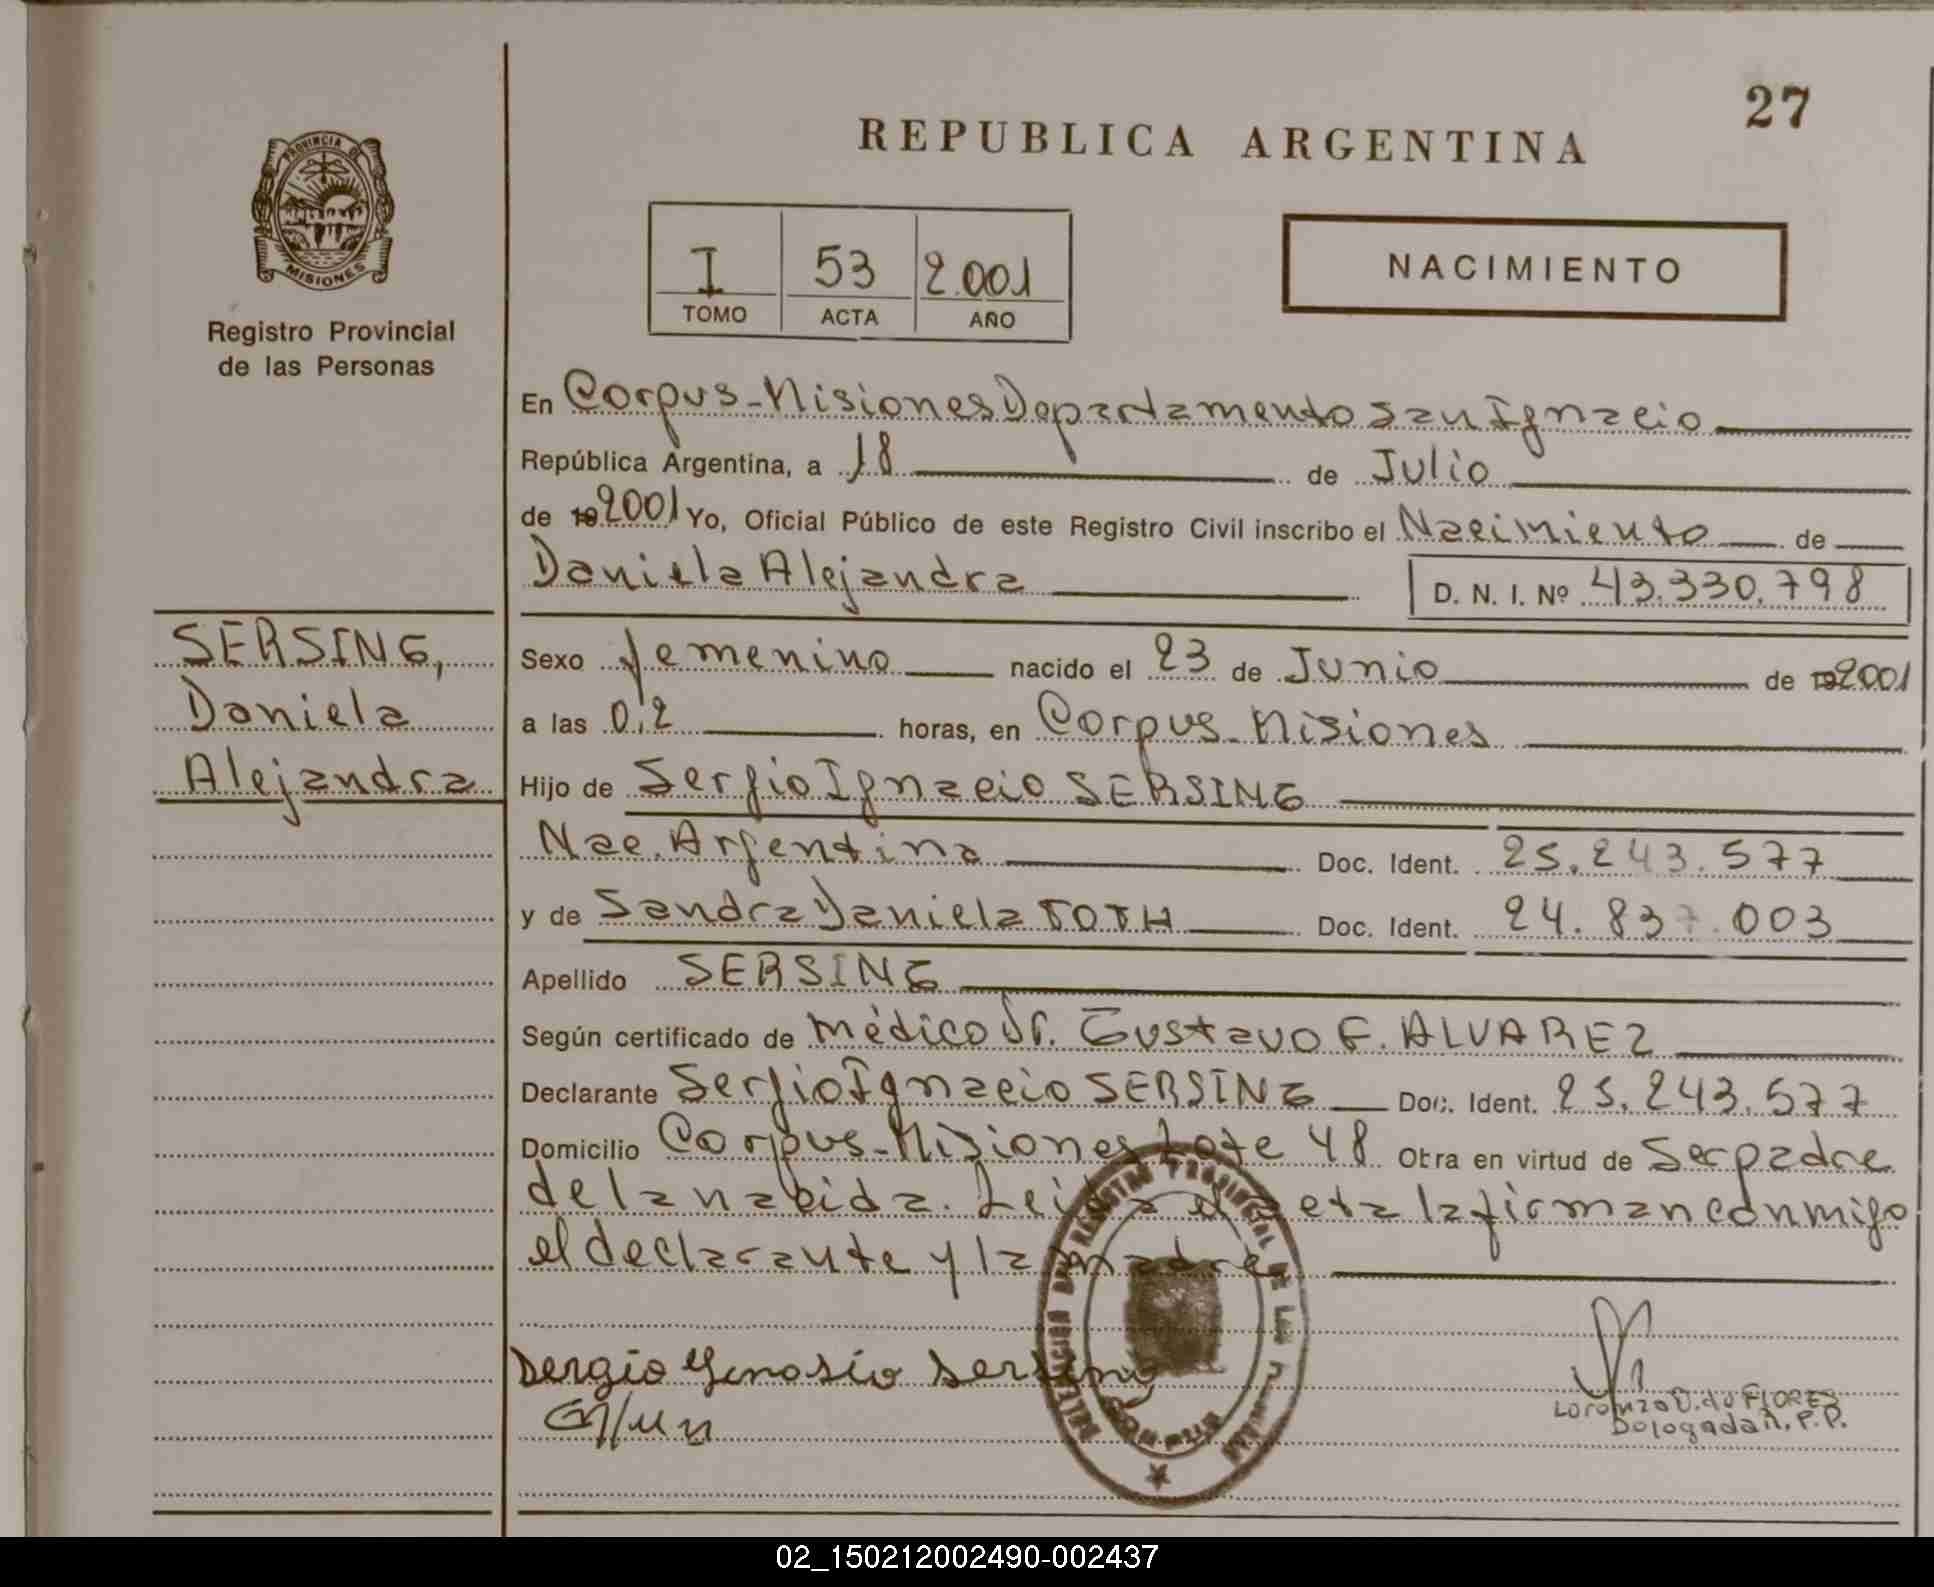 27
REPUBLICA ARGENTINA
PROVINCIA DE
MISIONES
Registro Provincial
de las Personas
I 53 2.001
TOMO ACTA AÑO
NACIMIENTO
En Corpus-Misiones Departamento San Ignacio
República Argentina, a 18 de Julio
de 19 2001 Yo, Oficial Público de este Registro Civil inscribo el Nacimiento de
Daniela Alejandra D. N. I. Nº 43.330.798
SERSING,
Daniela
Alejandra
Sexo femenino nacido el 23 de Junio de 19 2001
a las 0,2 horas, en Corpus-Misiones
Hijo de Sergio Ignacio SERSING
Nac. Argentina Doc. Ident. 25.243.577
y de Sandra Daniela TOTH Doc. Ident. 24.837.003
Apellido SERSING
Según certificado de médico Dr. Gustavo F. ALVAREZ
Declarante Sergio Ignacio SERSING Doc. Ident. 25.243.577
Domicilio Corpus-Misiones Lote 48 Obra en virtud de Ser padre
de la nacida. Leida el acta la firman conmigo
el declarante y la madre
Sergio Ignasio Sersing
DELEGACION DEL REGISTRO PROVINCIAL DE LAS PERSONAS
Lorenzo D. de FLORES
Delegada R.P.P.
02_150212002490-002437